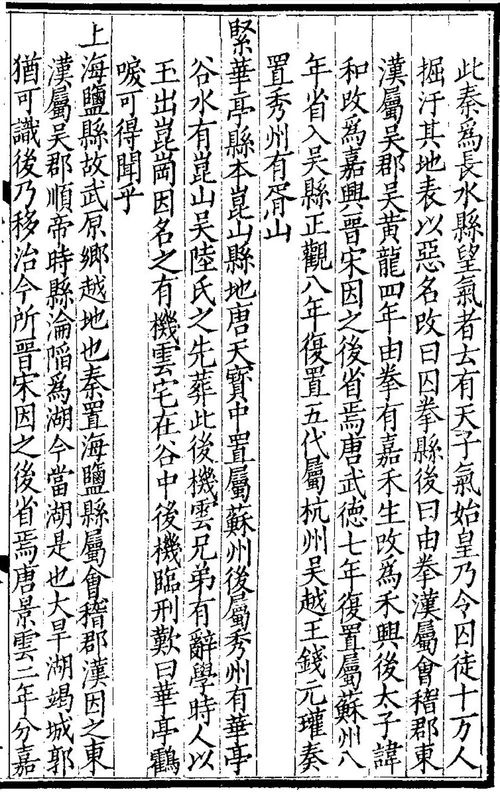 此秦為長水縣望氣者去有天子氣始皇乃令囚徒十万人
掘汙其地表以惡名改曰囚拳縣後曰由拳漢屬會稽郡東
漢屬吴郡吴黃龍四年由拳有嘉禾生改為禾興後太子諱
和改為嘉興晉宋因之後省焉唐武德七年復置屬蘇州八
年省入吴縣正觀八年復置五代屬杭州吴越王錢元瓘奏
置秀州有胥山
緊華亭縣本崑山縣地唐天寳中置屬蘇州後屬秀州有華亭
谷水有崑山吴陸氏之先葬此後機雲兄弟有辭學時人以
玉出崑崗因名之有機雲宅在谷中後機臨刑歎曰華亭鶴
唳可得聞乎
上海鹽縣故武原鄉越地也秦置海鹽縣屬會稽郡漢因之東
漢屬吴郡順帝時縣淪陷為湖今當湖是也大旱湖竭城郭
猶可識後乃移治今所晉宋因之後省焉唐景雲二年分嘉